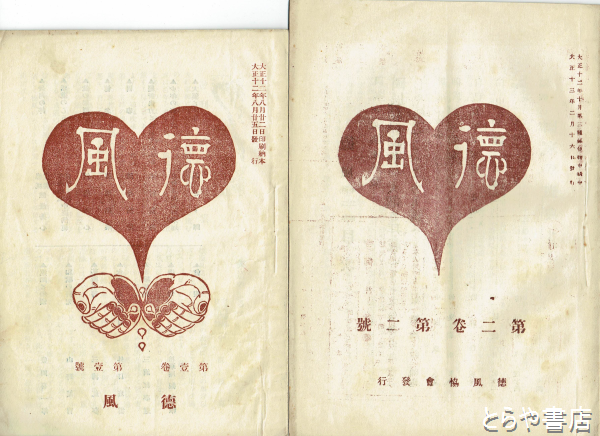 大正十二年八月廿二日印刷納本
大正十二年八月廿五日發行
德風
第壹卷 第壹號
德風
大正十三年二月十六日發行
德風
第二卷第二號
德風協會發行
とらや書店